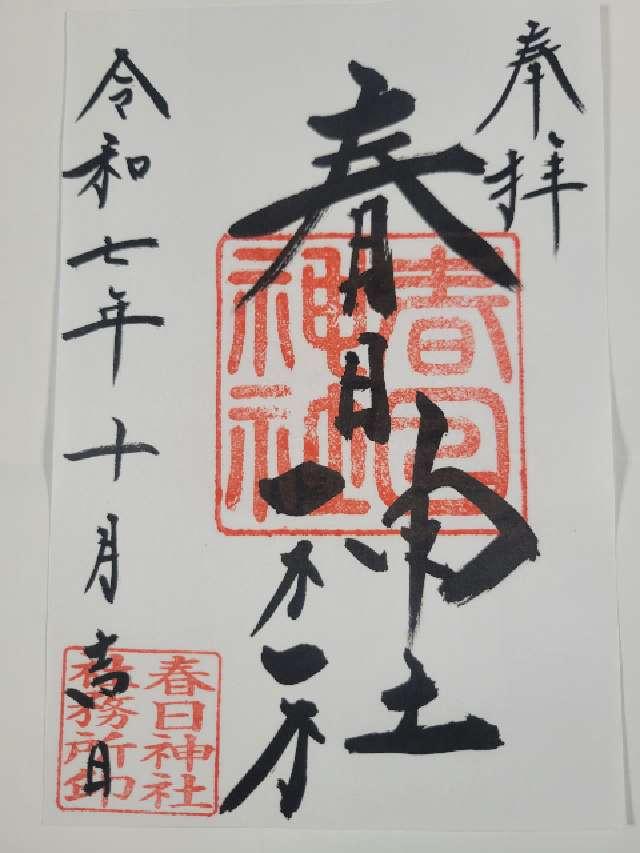 奉拝
春日神社
春日
神社
令和七年十月吉日
春日神社
社務所印